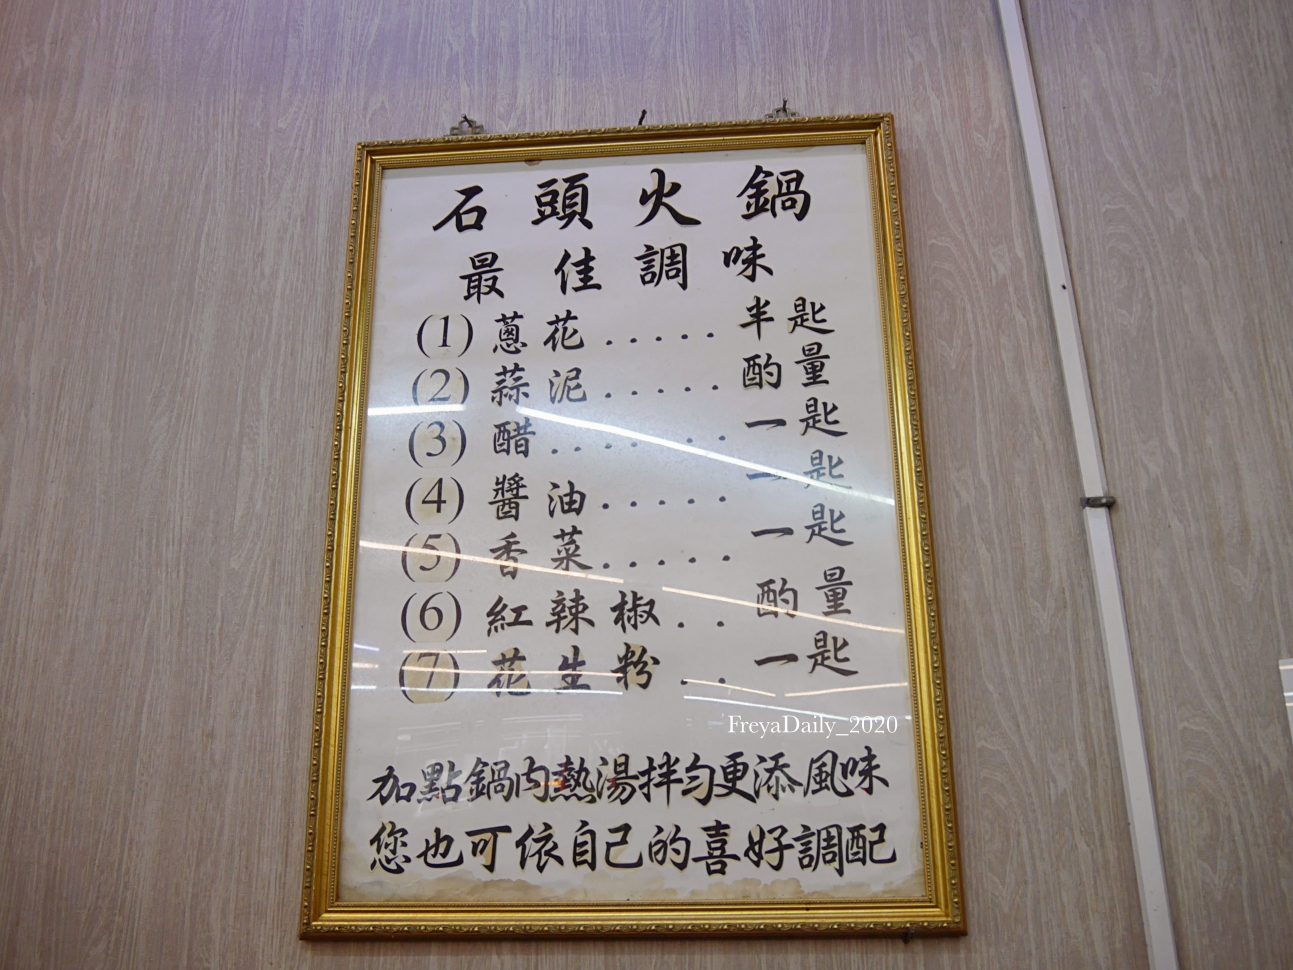 石頭火鍋
最佳調味
(1) 蔥花..... 半匙
(2) 蒜泥..... 酌量
(3) 醋...... 一匙
(4) 醬油..... 一匙
(5) 香菜..... 一匙
(6) 紅辣椒.. 酌量
(7) 花生粉.. 一匙
FreyaDaily_2020
加點鍋內熱湯拌勻更添風味
您也可依自己的喜好調配